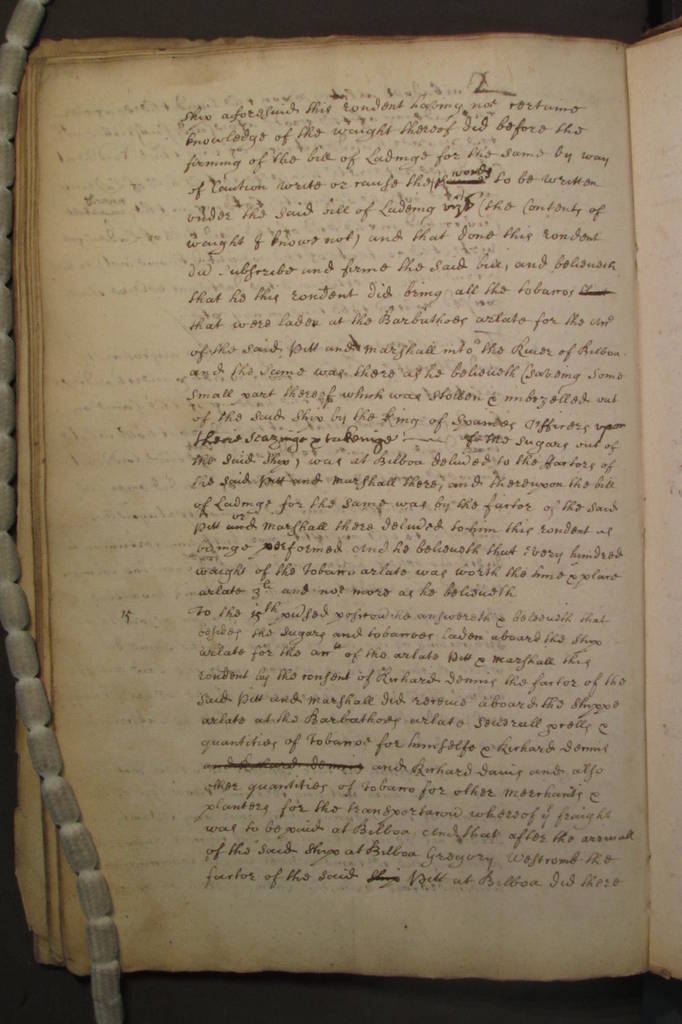 2
Shix aforesaid this rondent having not certaine
knowledge of the waight thereof did before the
firming of the bill of Ladinge for the same by way
of Caution write or cause the words to be written
under the said bill of Lading vizt (the Contents of
waight I knowe not) and that done this rondent
did subscribe and firme the said bill, and beleiveth
that he this rondent did bring all the tobaccos
that were laden at the Barbathoes arlate for the
of the said Pitt and Marshall into the River of Bilboa
and the same was there as he beleiveth (saveing some
small part thereof which was stollen & imbezelled out
of the said ship by the King of Spaines Officers upon
theire seazinge & takeinge of the sugars out of
the said ship) was at Bilboa delivred to the factors of
the said Pitt and Marshall there, and thereupon the bill
of Ladinge for the same was by the factor of the said
Pitt or Marshall there delivred to him this rondent as
beinge performed And he beleiveth that every hundred
waight of the Tobacco arlate was worth the time & place
arlate 3li and not more as he beleiveth
15 To the 15th posicon he answereth & beleiveth that
besides the sugars and tobaccoes laden aboard the ship
arlate for the of the arlate Pitt & Marshall this
rondent by the consent of Richard Dennis the factor of the
said Pitt and Marshall did receive aboard the shippe
arlate at the Barbathoes arlate severall &
quantities of Tobacco for himselfe & Richard Dennis
and Richard Dennis and Richard Davis and also
other quantities of Tobacco for other Merchants &
planters for the transportacion whereof ye fraight
was to be paid at Bilboa And that after the arrivall
of the said ship at Bilboa Gregory Westcombe the
factor of the said Pitt at Bilboa did there